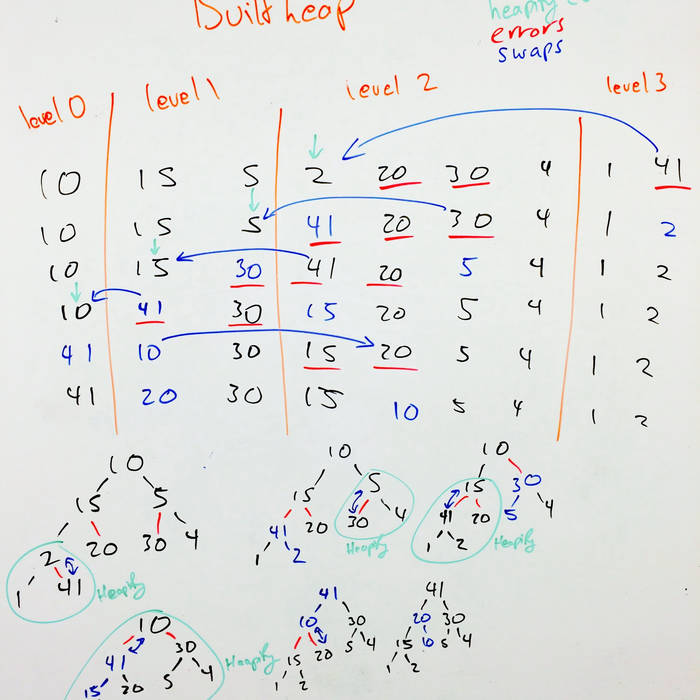 Built heap
heapify
errors
swaps
level 0 level 1 level 2 level 3
10 15 5 2 20 30 4 1 41
10 15 5 41 20 30 4 1 2
10 15 30 41 20 5 4 1 2
10 41 30 15 20 5 4 1 2
41 10 30 15 20 5 4 1 2
41 20 30 15 10 5 4 1 2
10
15 5
2 20 30 4
1 41
Heapify
10
15 5
41 20 30 4
1 2
Heapify
10
15 30
41 20 5 4
1 2
Heapify
10
41 30
15 20 5 4
Heapify
41
10 30
15 20 5 4
1 2
41
20 30
15 10 5 4
1 2